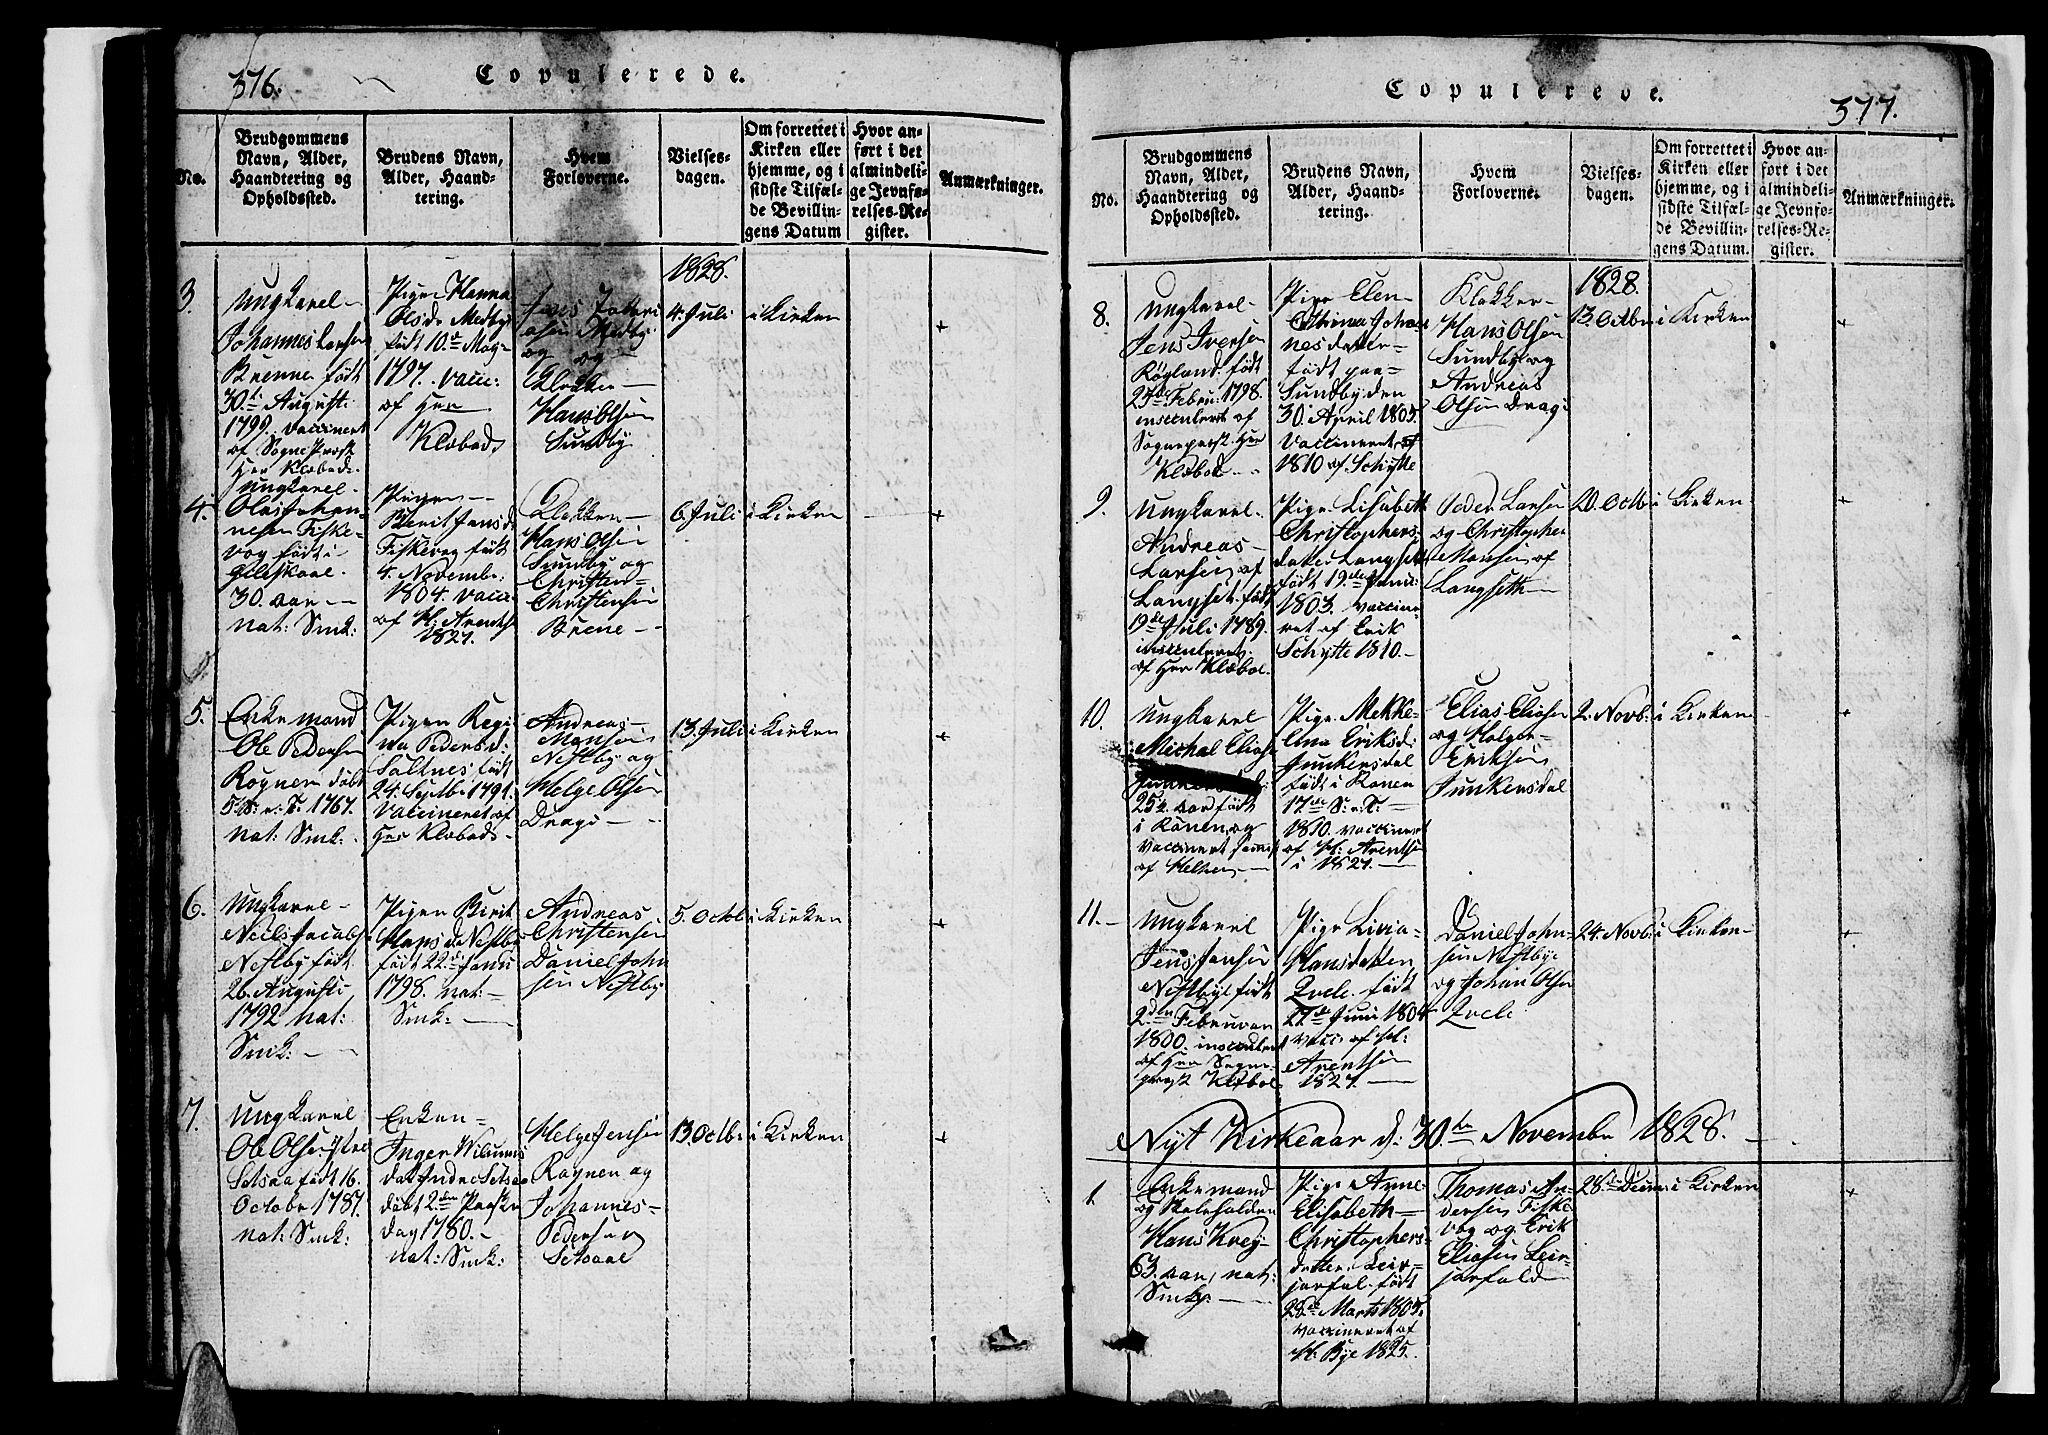 376.
Copulerede.
No.
Brudgommens
Navn, Alder,
Haandtering og
Opholdssted.
Brudens Navn,
Alder, Haand-
tering.
Hvem
Forloverne.
Vielses-
dagen.
Om forrettet i
Kirken eller
hjemme, og i
sidste Tilfæl-
de Bevillin-
gens Datum
Hvor an-
ført i det
almindeli-
ge Jevnfø-
relses-Re-
gister.
Anmærkninger.
1828.
3.
Ungkarl
Johannes Larsen
Brenne født
30te Augusti
1799. vaccinert
af Sogne Provst
Her Klæboe
Pigen Hanna
Olsd. Medby
født 10de May
1797. vacc:
af Her
Klæboe
Jens
Medby
og
Klokker
Hans Olsen
Sundby
4. Juli
i Kirken
+
4.
Ungkarl
Ole Johan-
nesen Fiske-
vog født i
Gilskaal
30. aar
nat: Smk:
Pigen
Berit Jensd.
Fiskevog født
4. Novembr:
1804. vacc:
af H: Arentz
1827.
Klokker
Hans Olsen
Sundby og
Christen
Christensen
Brene
6. Juli
i Kirken
+
5.
Enkemand
Ole Pedersen
Rognen døbt
5. S: e: T: 1767.
nat: Smk:
Pigen Regi-
na Pedersd:
Saltnes født
24. Septbr 1791.
Vaccineret af
Her Klæboe
Andreas
Monsen
Nestby og
Helge Olsen
Drage
13. Juli
i Kirken
+
6.
Ungkarl
Neils Jacobs:
Nestby født
26. Augusti
1792 nat:
Smk:
Pigen Berit
Hansd. Nestby
født 22. Janu
1798. nat:
Smk:
Andreas
Christensen
Daniel John
sen Nestby
5. Octb:
i Kirken
+
7.
Ungkarl
Ole Olsen Ytre
Setsaa født 16.
Octobr 1787.
nat: Smk:
Enken
Inger Wilums
dat Indre Setsaa
døbt 2den Paaske
dag 1780.
nat: Smk:
Helge Jensen
Rognen og
Johannes
Pedersen
Setsaae
13. Octb:
i Kirken
+
377.
Copulerede.
No.
Brudgommens
Navn, Alder,
Haandtering og
Opholdssted.
Brudens Navn,
Alder, Haand-
tering.
Hvem
Forloverne.
Vielses-
dagen.
Om forrettet i
Kirken eller
hjemme, og i
sidste Tilfæl-
de Bevillin-
gens Datum.
Hvor an-
ført i det
almindeli-
ge Jevnfø-
relses-Re-
gister.
Anmærkninger.
1828.
8.
Ungkarl
Jens Iversen
Røgland født
25de Febru: 1798.
inoculert af
Sogneprest Her
Klæboe
Pige Elen
Cthrina Johan
nesdatter
født paa
Sundby den
30 April 1805.
Vaccineret
1810 af Schytte
Klokker
Hans Olsen
Sundby og
Andreas
Olsen Drage
13. Octbr
i Kirken
+
9.
Ungkarl
Andreas
Larsen af
Langset født
19de Juli 1789.
inoculeret
af Her Klæboe
Pige Lisabeth
Christophers
datter Langset
født 19de Janu:
1803. vaccine
ret af Erik
Schytte 1810.
Peder Larsen
og Christopher
Monsen af
Langseth
20. Octb:
i Kirken
+
10.
Ungkarl
Michal Elias
Junkersdal
25 1/2 aar født
i Ranen og
vaccinert samme
af Helsen
Pige Mekke-
lina Eriksd:
Junkersdal
født i Ranen
17de S: e: T:
1810. vaccinert
af H: Arentsen
i 1827.
Elias Eliasen
og Holger
Eriksen
Junkersdal
2. Novb:
i Kirken
+
11.
Ungkarl
Jens Jansen
Nestbye født
2den Februar
1800. inoculert
af Her Sogne-
prest Klæboe
Pige Livia
Hansdatter
Qvele født
27de Juni 1804
vacc: af hl:
Arentsen
1827.
Daniel John-
sen Nestbye
og Johan Olsen
Qvele
24. Novb:
i Kirken
+
Nyt Kirkeaar d: 30te Novembr 1828.
1.
Enkemand
og Skoleholder
Hans Krey
63. aar, nat:
Smk:
Pige Anne
Elisabeth
Christophers
datter Leir-
jorfal født
28de Marts 1805.
vaccineret af
H: Bye 1825.
Thomas An-
dersen Fiske
vog og Erik
Eliasen Leir-
jorfald
28de Decm:
i Kirken
+